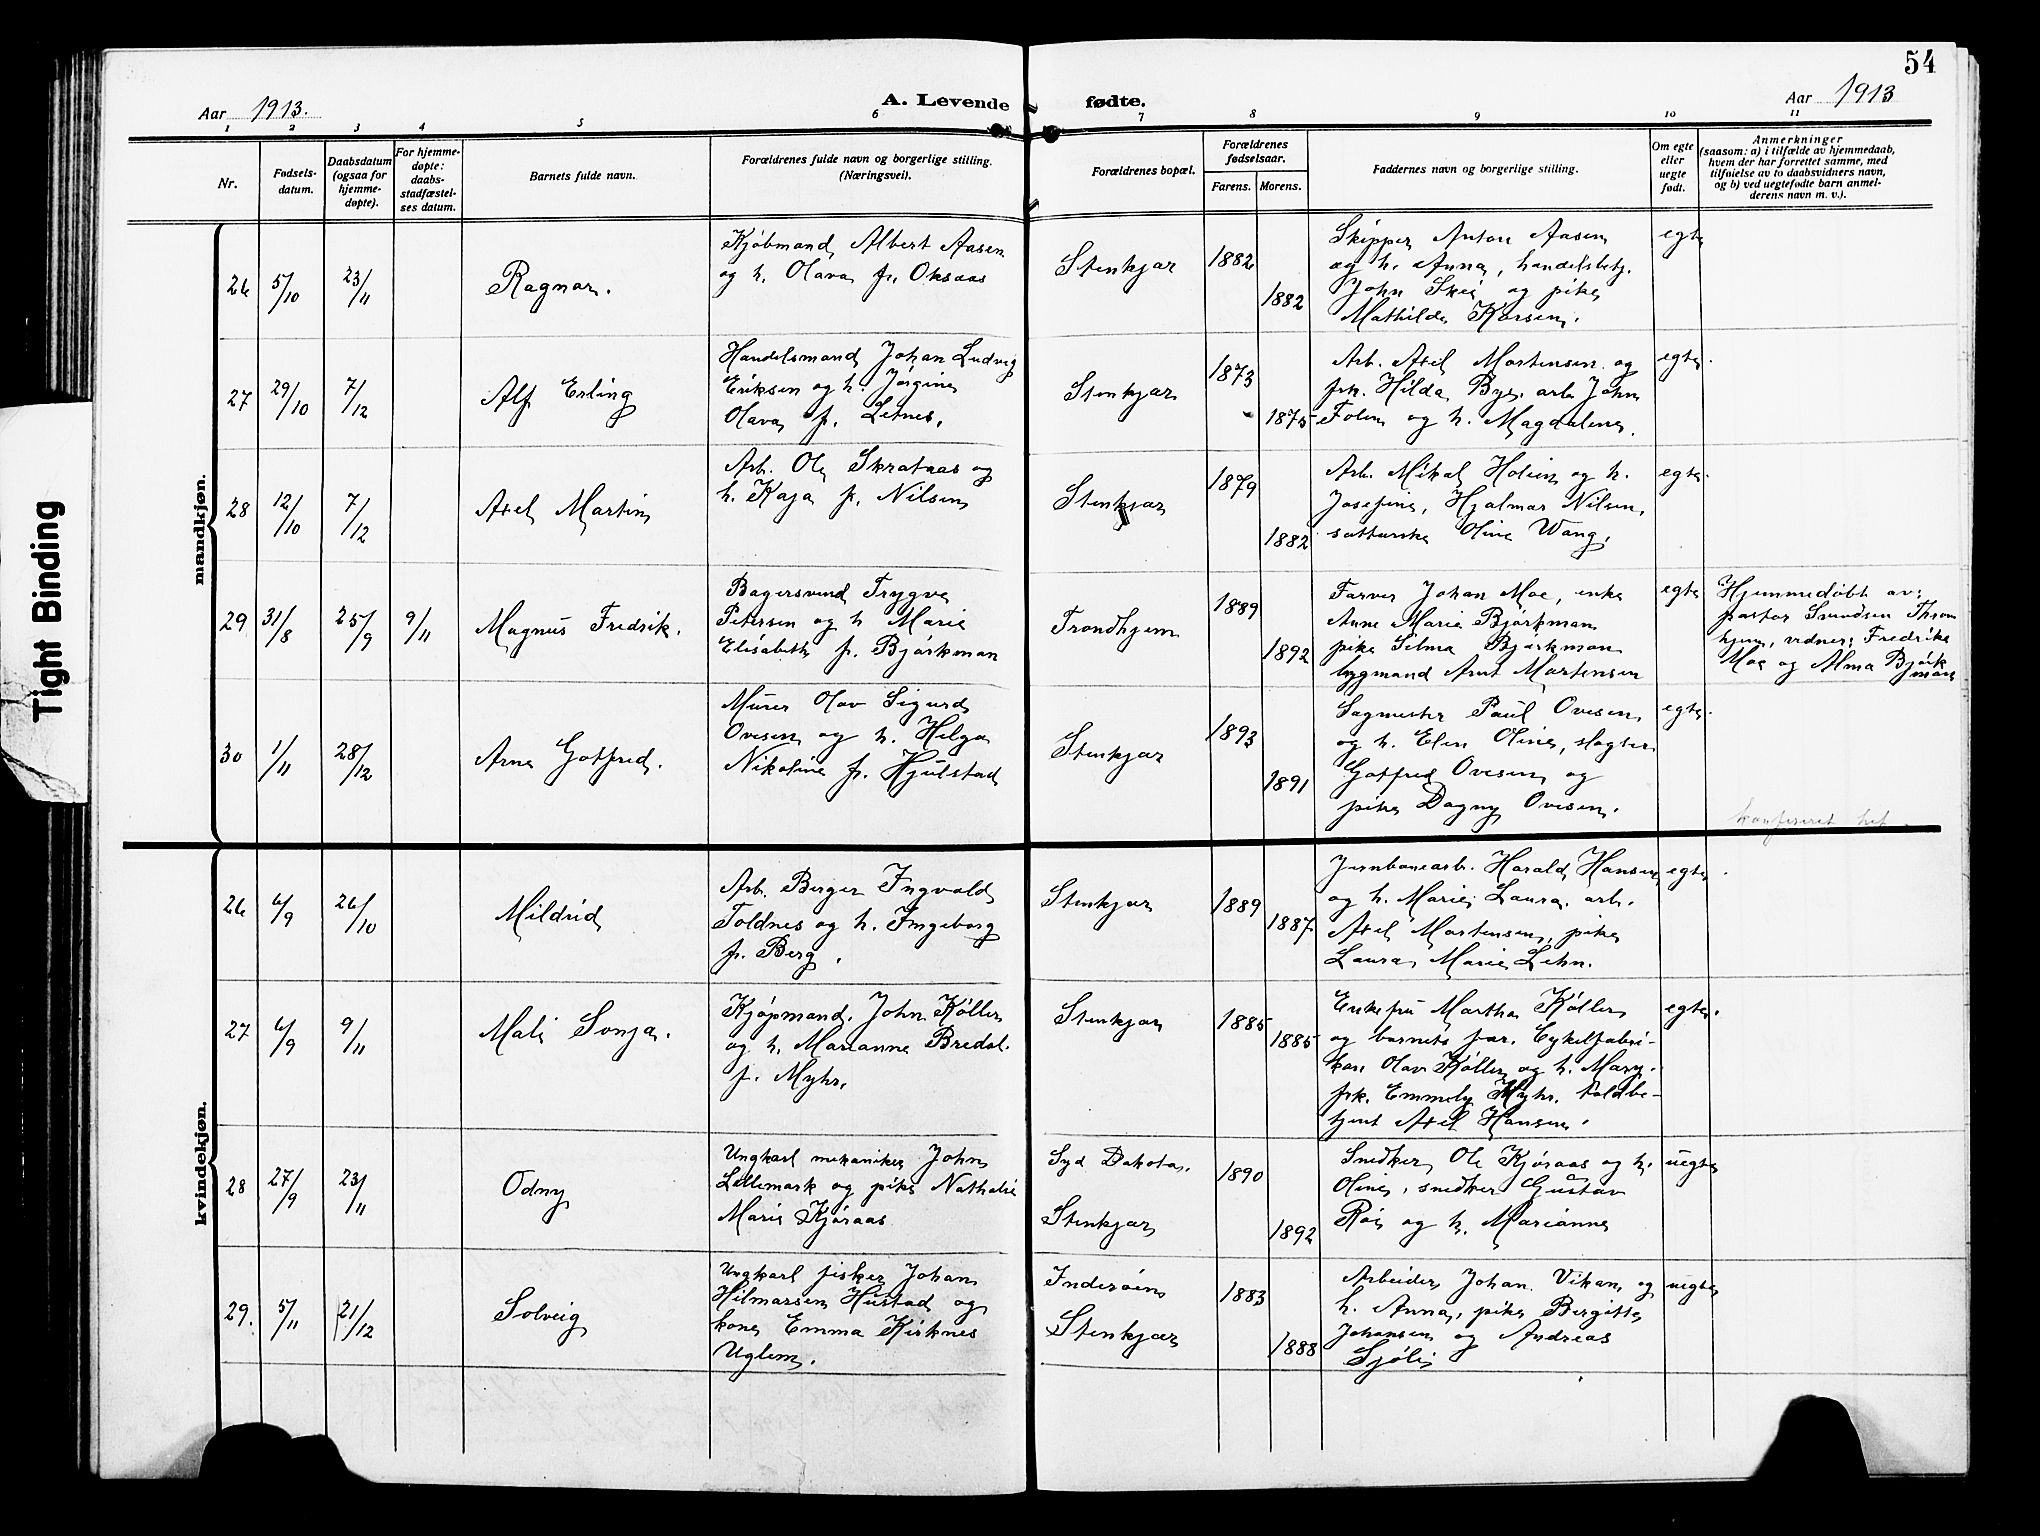 54
Aar 1913.
A. Levende fødte.
Aar 1913
1 2 3 4 5 6 7 8 9 10 11
Nr.
Fødsels-
datum.
Daabsdatum
(ogsaa for
hjemme-
døpte).
For hjemme-
døpte:
daabs-
stadfæstel-
ses datum.
Barnets fulde navn.
Forældrenes fulde navn og borgerlige stilling.
(Næringsvei).
Forældrenes bopæl.
Forældrenes
fødselsaar.
Farens. Morens.
Faddernes navn og borgerlige stilling.
Om egte
eller
uegte
født.
Anmerkninger
(saasom: a) i tilfælde av hjemmedaab,
hvem der har forrettet samme, med
tilføielse av to daabsvidners navn,
og b) ved uegtefødte barn anmel-
derens navn m. v.).
Tight Binding
mandkjøn.
26 5/10 23/11
Ragnar.
Kjøbmand Albert Aasen
og h. Olava f. Oksaas
Stenkjær
1882
1882
Skipper Anton Aasen
og h. Anna, handelsbetj.
John Skei og pike
Mathilde Karsen.
egte
27 29/10 7/12
Alf Erling
Handelsmand Johan Ludvig
Eriksen og h. Jørgine
Olava f. Letnes.
Stenkjær
1873
1875
Arb. Axel Martensen og
frk. Hilda Bye, arb. John
Folen og h. Magdalena.
egte.
28 12/10 7/12
Axel Martin
Arb. Ole Skrataas og
h. Kaja f. Nilsen
Stenkjær
1879
1882
Arb. Mikal Holien og h.
Josefine, Hjalmar Nilsen,
Oline Wang.
egte.
29 31/8 25/9 9/11
Magnus Fredrik.
Bagersvend Trygve
Petersen og h. Marie
Elisabeth f. Bjørkman
Trondhjem
1889
1892
Farver Johan Moe, enke
Anne Marie Bjørkman
pike Silma Bjørkman
bygmand Arnt Martensen
egte
Hjemmedøbt av:
pastor
hjem, vidner: Fredrikke
Moe og Alma Bjørk
man
30 1/11 28/12
Arne Gotfred.
Murer Olav Sigurd
Ovesen og h. Helga
Nikoline f. Hjulstad
Stenkjær
1893
1891
Sagmester Paul Ovesen
og h. Elen Oline, slagter
Gotfred Ovesen og
pike Dagny Ovesen.
egte.
kvindekjøn.
26 6/9 26/10
Mildrid
Arb. Berger Ingvald
Toldnes og h. Ingeborg
f. Berg.
Stenkjær
1889
1887
Jernbanearb. Harald Hansen
og h. Marie Laura, arb.
Axel Martensen, pike
Laura Marie Lehn.
egte.
27 6/9 9/11
Mali Sonja.
Kjøpmand John Køller
og h. Marianne Bredal.
f. Myhr.
Stenkjær
1885
1885
Enkefru Martha Køller
og barnets far. Cykelfabri-
kør Olav Køller og h. Mary.
frk. Emmely Myhr. toldbe-
tjent Axel Hansen.
egte.
28 27/9 23/11
Odny
Ungkarl mekaniker John
Lillemark og pike Nathalie
Marie Kjøraas
Syd Dakota.
Stenkjær
1890
1892
Snedker Ole Kjøraas og h.
Oline, snedker Gustav
Røe og h. Marianne
uegte
29. 5/11 21/12
Solveig
Ungkarl fisker Johan
Hilmarsen Hustad og
kone Emma Kirknes
Uglem.
Inderøen
Stenkjær
1883
1888
Arbeider Johan Vikan og
h. Anna, pike Bergitte
Johansen og Andreas
Sjøli
uegte